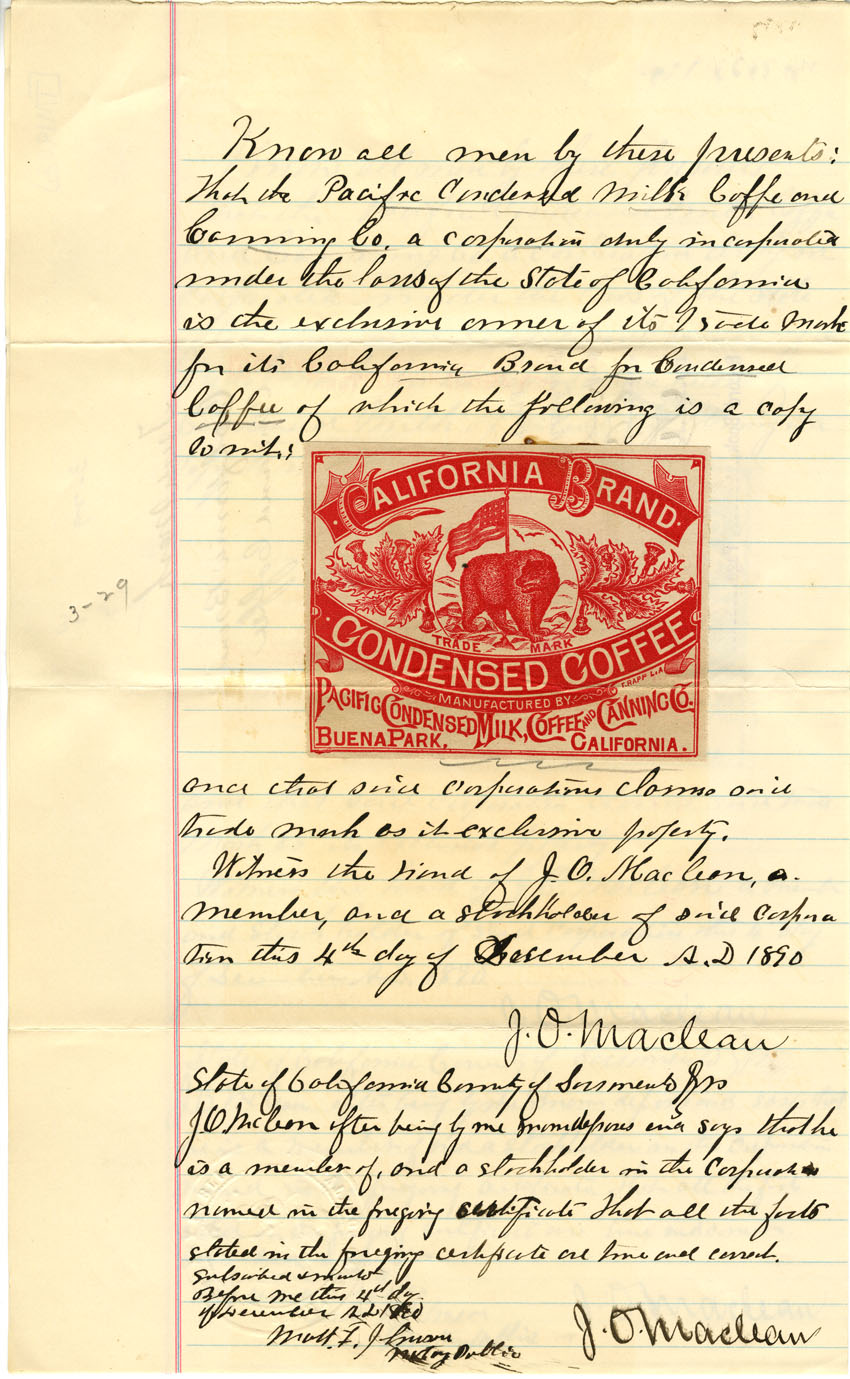 Know all men by these presents:
That the Pacific Condensed Milk Coffe and
Canning Co. a corporation duly incorporated
under the laws of the State of California
is the exclusive owner of its Trade Mark
for its California Brand for Condensed
Coffee of which the following is a copy
to wit:
CALIFORNIA BRAND
TRADE MARK
CONDENSED COFFEE
T. RAPP L.A
MANUFACTURED BY
PACIFIC CONDENSED MILK, COFFEE AND CANNING CO.
BUENA PARK, CALIFORNIA.
3-29
and that said corporations claims said
trade mark as it exclusive poperty.
Witness the hand of J. O. Maclean, a
member, and a stockholder of said corpora
tion this 4th day of December A.D 1890
J. O. Maclean
State of California County of Sacramento ss
J O Mclean after being by me sworn deposes and says that he
is a member of, and a stockholder in the Corporation
named in the foregoing certificate that all the facts
stated in the foregoing certificate are true and correct.
Subscribed & sworn to
Before me this 4th day
of December AD 1890
Matt. F. Johnson
Notary Public
J. O. Maclean